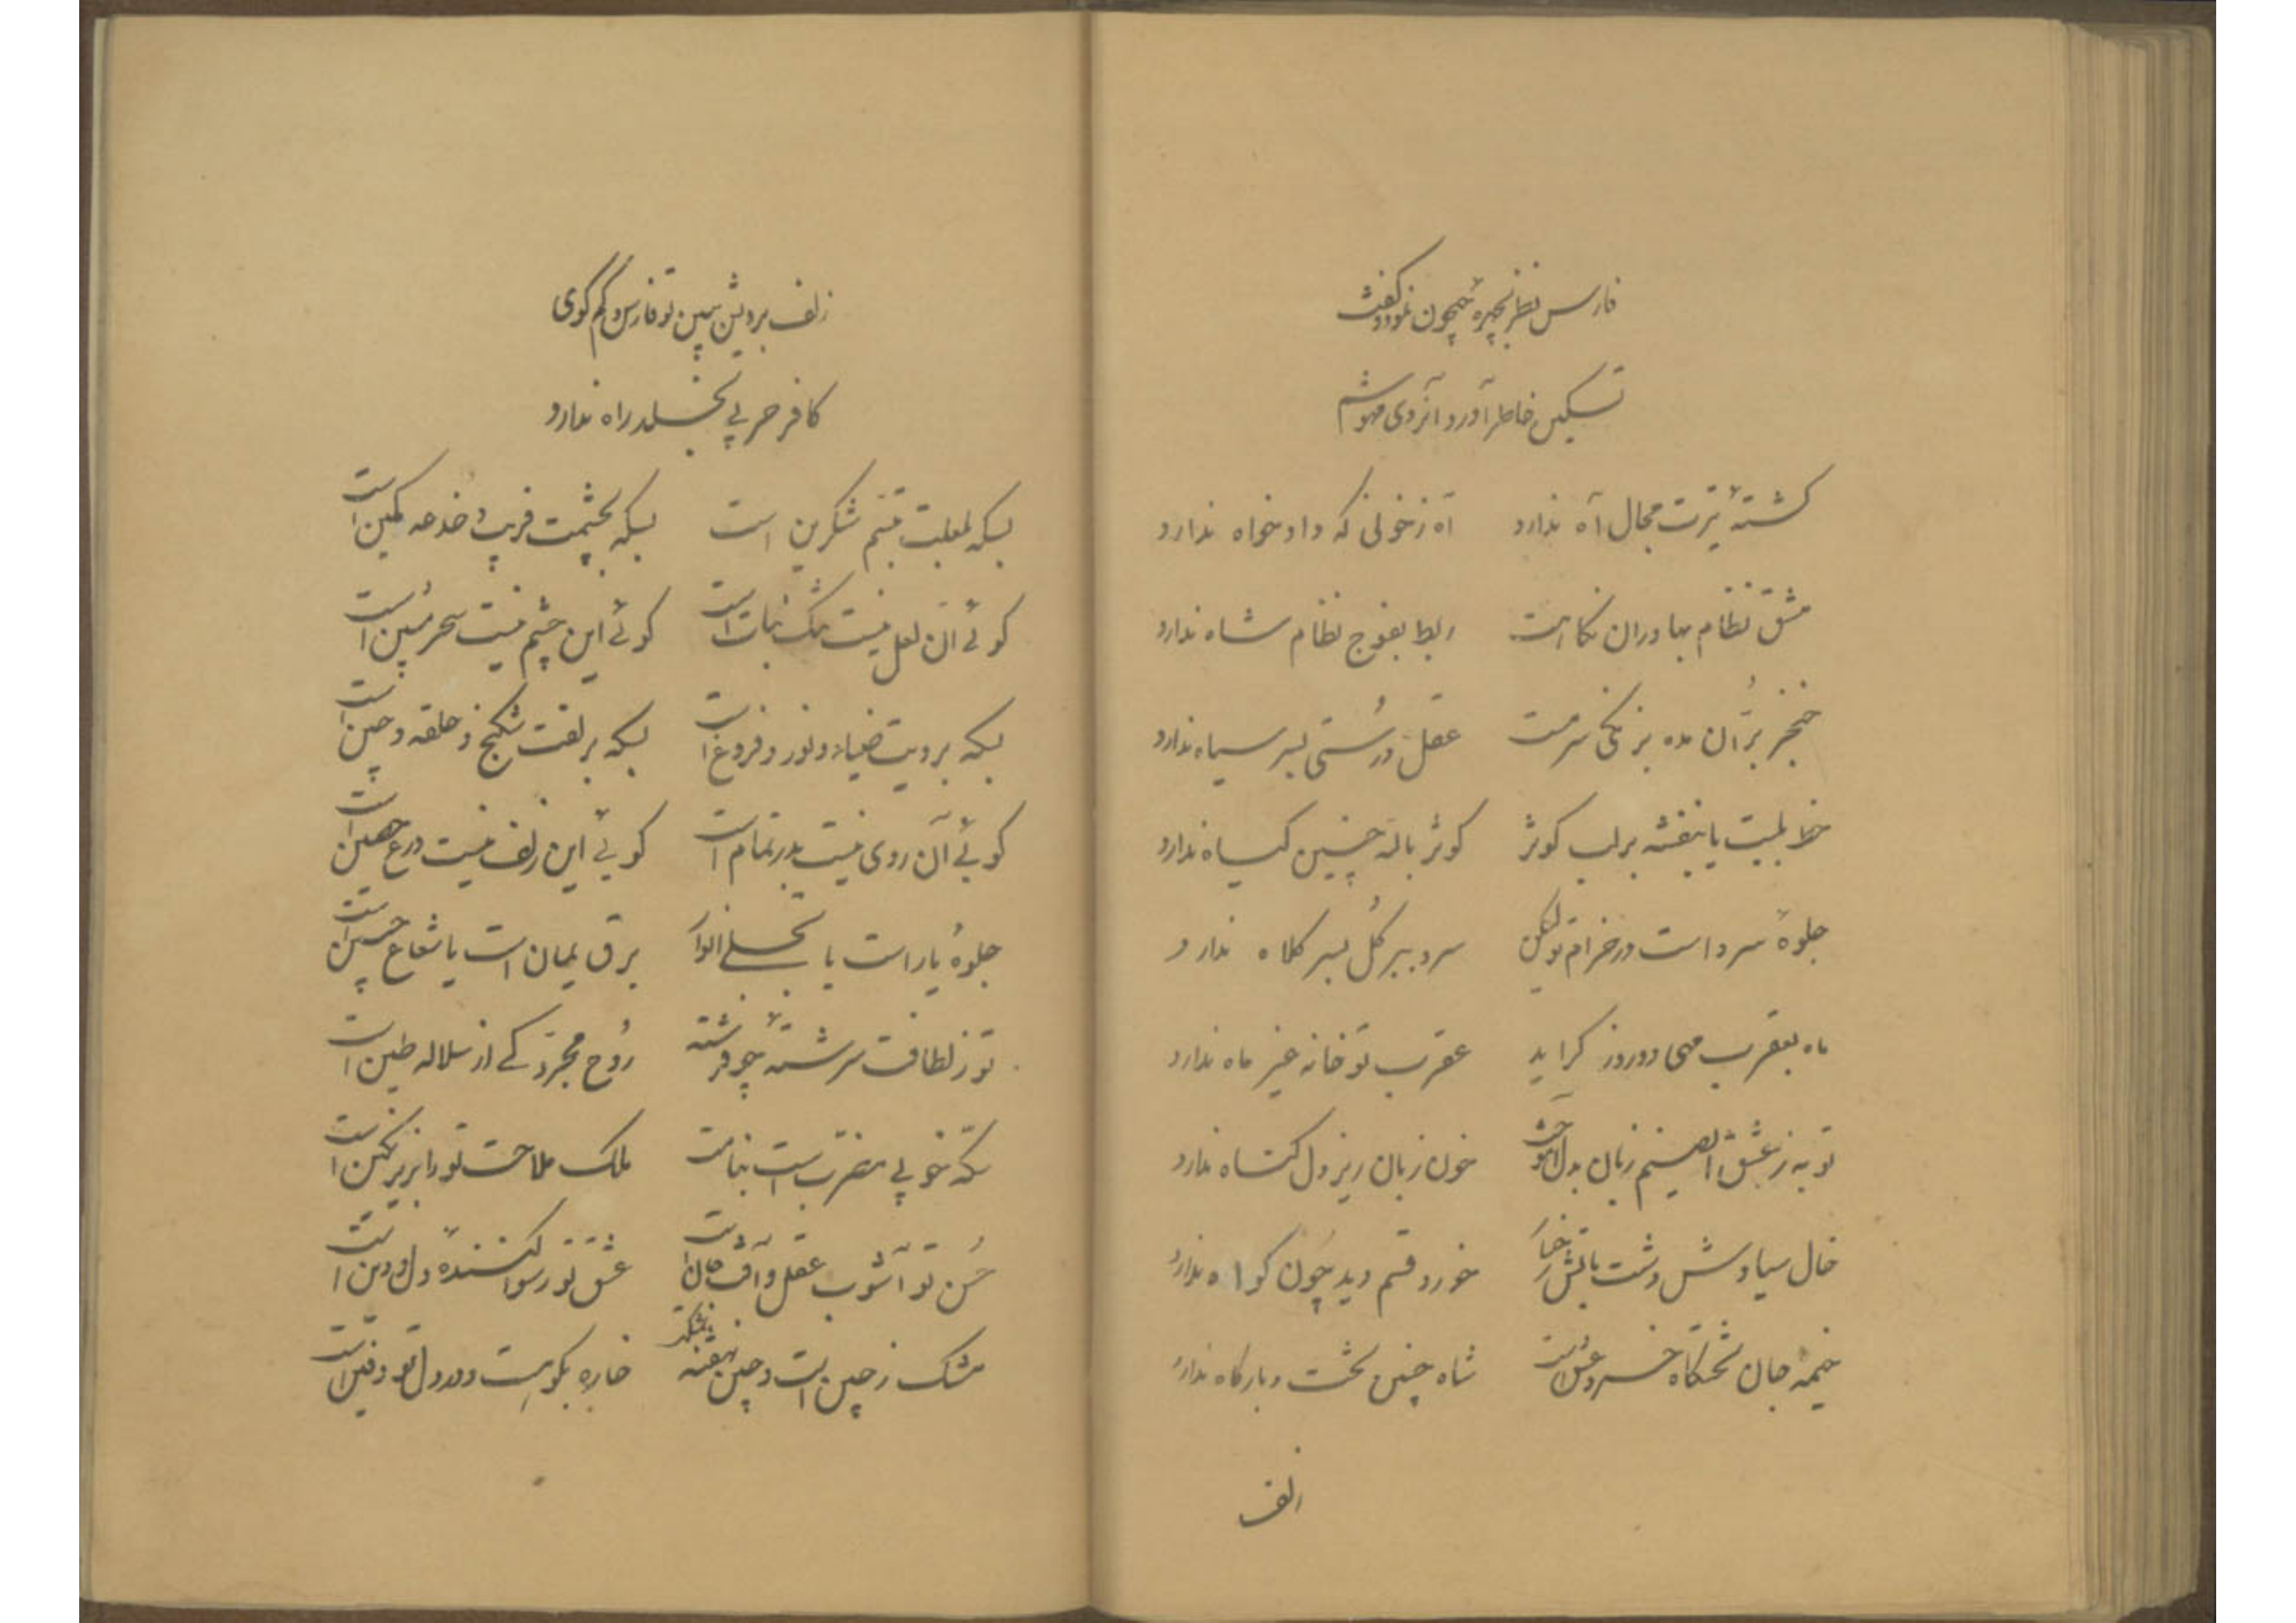 فارس نظر بچهرهٔ بیچون نمود و گفت
تسکین خاطر آورد آنروی مهوشم
کشتهٔ تیرت مجال آه ندارد آه ز خونی که دادخواه ندارد
مشق نظام بهادران نگاهت ربط بفوج نظام شاه ندارد
خنجر برّان مده بزنگی سرمست عقل درُستی بسر سیاه ندارد
خط بلبت یا بنفشه بر لب کوثر کوثر باللّه چنین گیاه ندارد
جلوهٔ سرو است در خرام تو لیکن سرو ببر گل بسر کلاه ندارد
ماه بعقرب مهی دو روز گراید عقرب تو خانه غیر ماه ندارد
توبه ز عشقت ای صنم زبان بدل خون زبان ریز دل گناه ندارد
خال سیاوش وشت بآتش رخسار خورد قسم دید چون گواه ندارد
خیمهٔ جان تختگاه خسرو عشقست شاه چنین تخت و بارگاه ندارد
زلف
زلف برویش ببین تو فارس و کم گوی
کافر حربی بخلد راه ندارد
بسکه بلعلبت تبسّم شکرین است بسکه بچشمت فریب و خدعه کمین است
گوئی آن لعل نیست تنگ نبات است گوئی این چشم نیست سحر مُبین است
بسکه برویت ضیاء و نور و فروغ است بسکه بزلفت شکنج و حلقه و چین است
گوئی آن روی نیست بدر تمام است گوئی این زلف نیست درع حصین است
جلوهٔ یار است یا تجلی انوار برق یمان است یا شعاع جبین است
تو ز لطافت سرشتهٔ چو فرشته رُوح مجرّد کی از سلاله طین است
سکّه خوبی مضرب است بنامت ملک ملاحت تو را بزیر نگین است
حُسن تو آشوب عقل و آفت جان است عشق تو رسوا کنندهٔ دل و دین است
مشک ز چین است و چین بنفشه